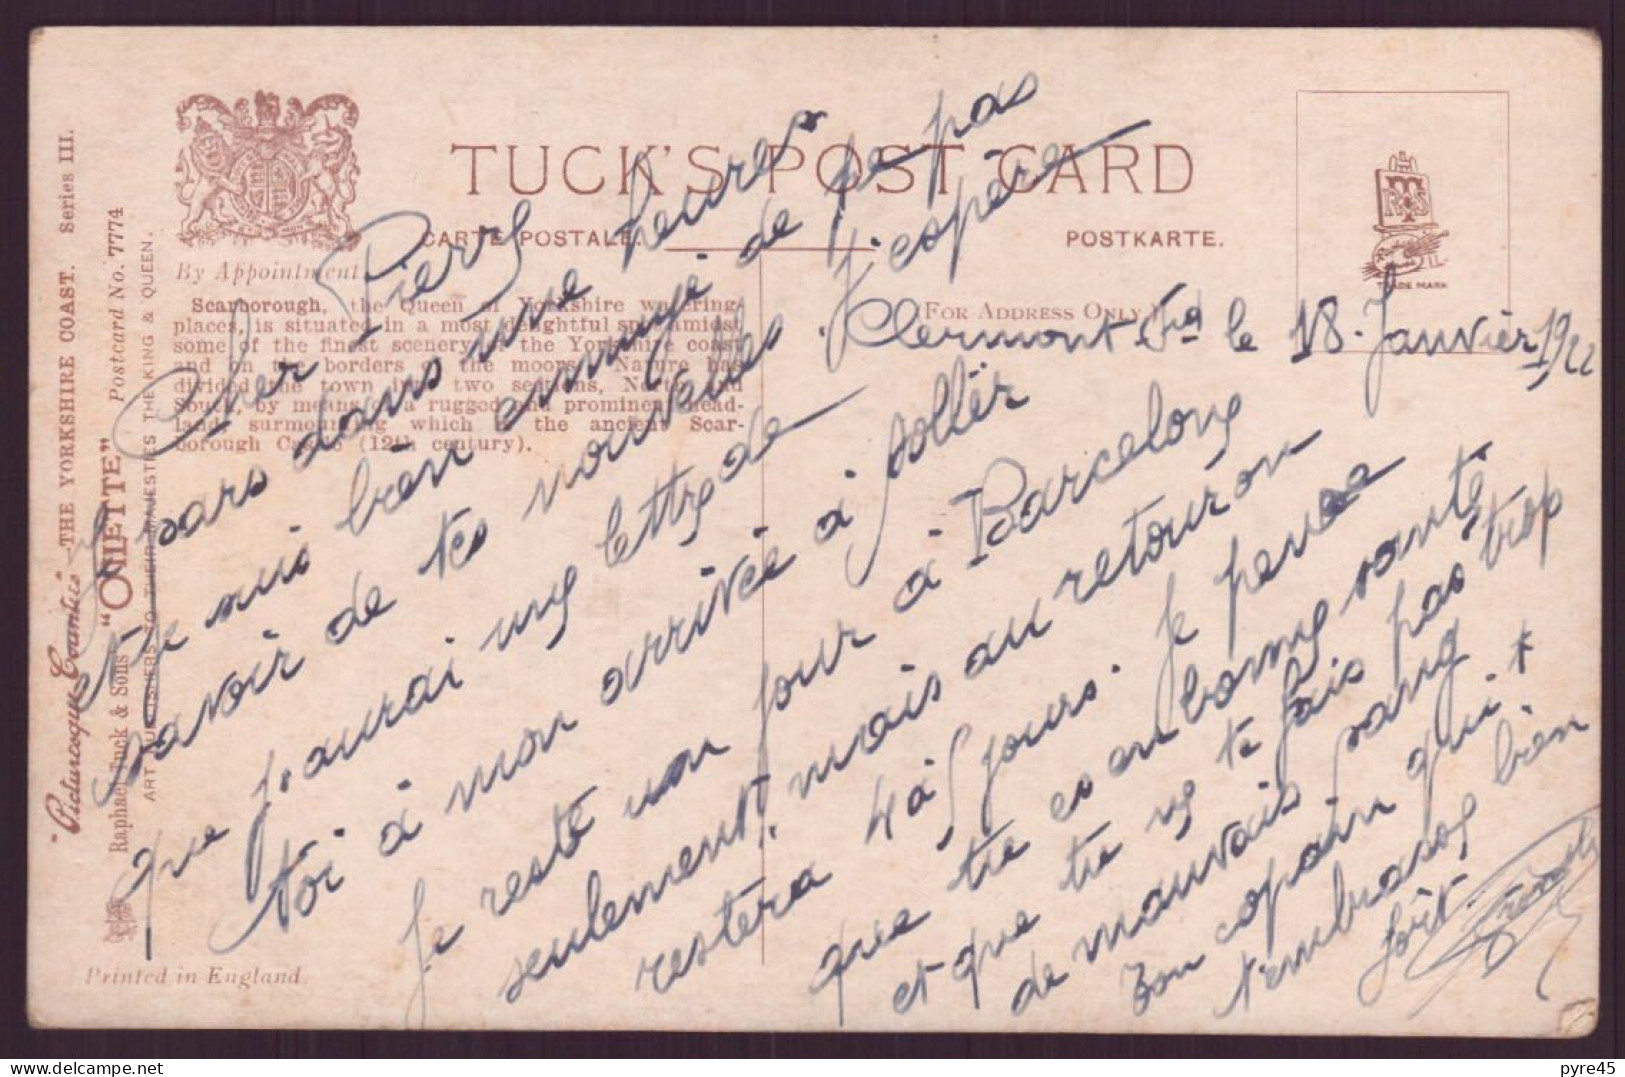 TUCK'S POST CARD
CARTE POSTALE.
POSTKARTE.
(FOR ADDRESS ONLY.)
TRADE MARK
By Appointment
Scarborough, the Queen of Yorkshire watering-
places, is situated in a most delightful spot amidst
some of the finest scenery of the Yorkshire coast
and on the borders of the moors. Nature has
divided the town into two sections, North and
South, by means of a rugged and prominent head-
land, surmounting which is the ancient Scar-
borough Castle (12th century).
"Picturesque Counties"—THE YORKSHIRE COAST. Series III.
"OILETTE" Postcard No. 7774
Raphael Tuck & Sons'
ART PUBLISHERS TO THEIR MAJESTIES THE KING & QUEEN.
Printed in England.
Clermont Fd le 18 Janvièr 1922
Cher Pierre
Je pars dans une heures
et je suis bièn ennuyé de ne pas
savoir de tes nouvelles. J'espère
que j'aurai une lettre de
toi à mon arrivée à Sollèr
Je reste un jour à Barcelone
seulement, mais au retour on
restera 4 à 5 jours. Je pense
que tu es en bonne santé
et que tu ne te fais pas trop
de mauvais sang
Ton copain qui
t'embrasse bièn
fort
pyre45